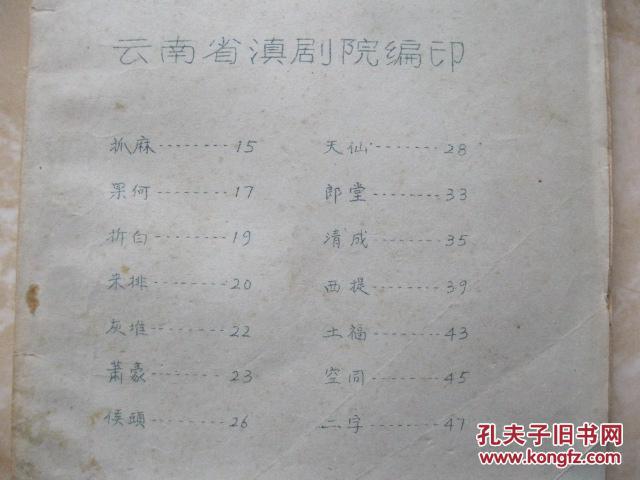 云南省滇剧院编印
抓麻--------15 天仙--------28
罘何--------17 郎堂--------33
折白--------19 清成--------35
朱排--------20 西提--------39
灰堆--------22 土福--------43
萧豪--------23 空同--------45
侯頭--------26 二字--------47
孔夫子旧书网
www.kongfz.com